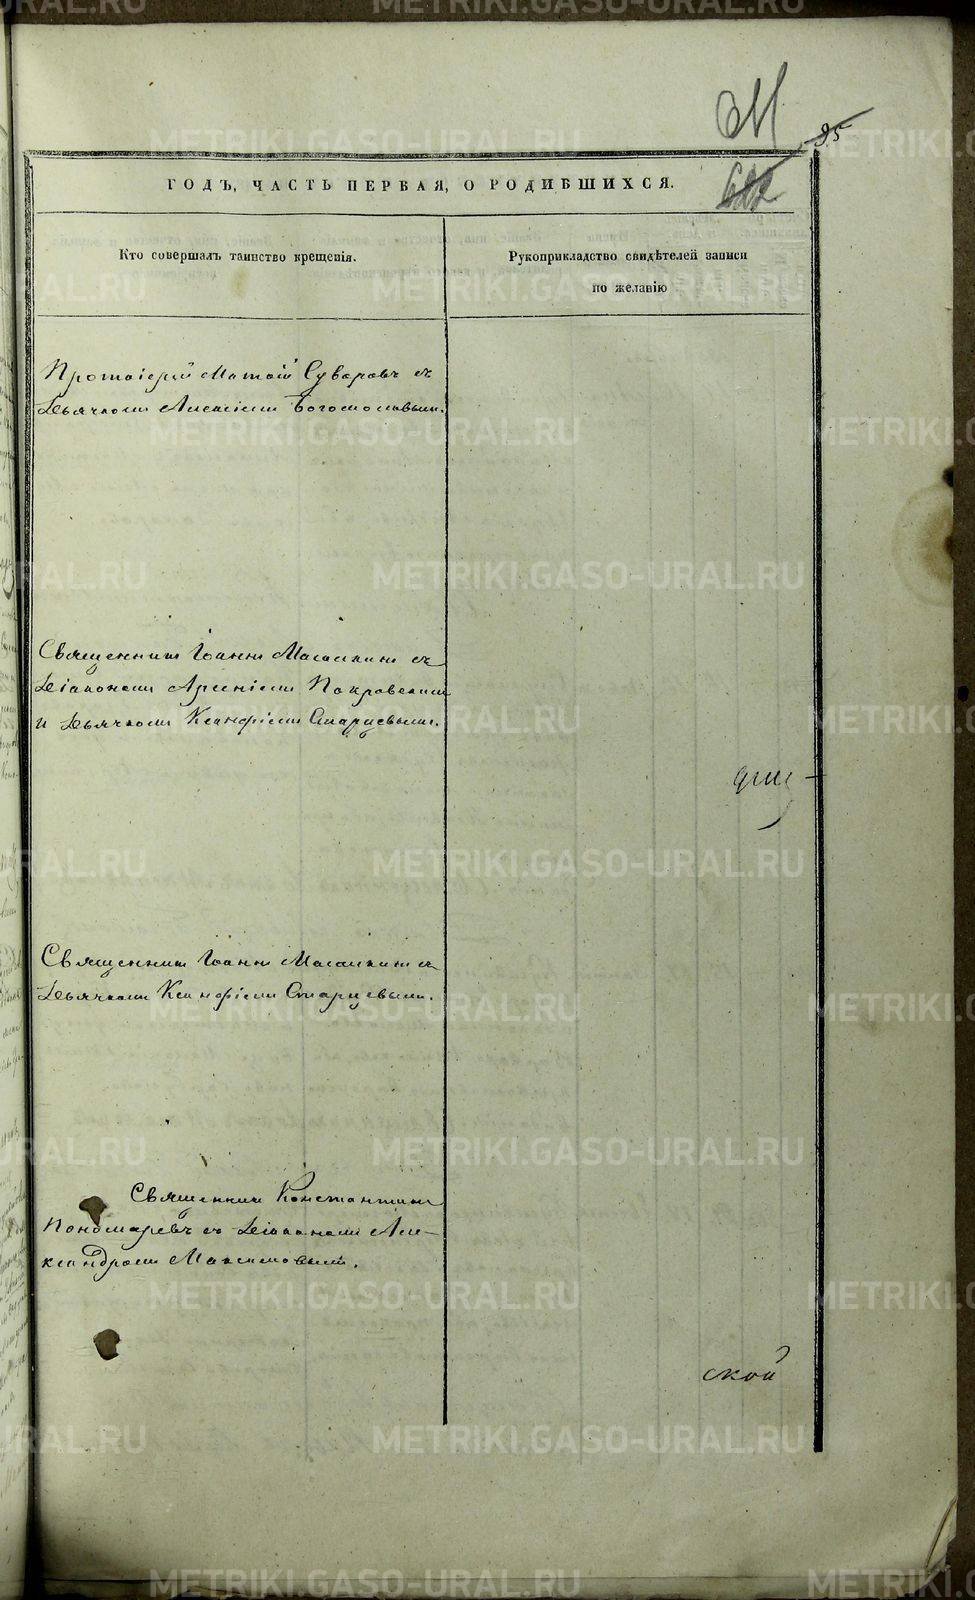 95
ГОДЪ, ЧАСТЬ ПЕРВАЯ, О РОДИВШИХСЯ.
Кто совершалъ таинство крещенія.
Рукоприкладство свидѣтелей записи
по желанію
Протоіерей Матѳій Суворовъ съ
Дьячкомъ Алексіемъ Богомоловымъ.
Священникъ Іоаннъ съ
Діакономъ Арсеніемъ Покровскимъ
и Дьячкомъ Ксанфіемъ Старцевымъ.
Священникъ Іоаннъ съ
Дьячкомъ Ксанфіемъ Старцевымъ.
Священникъ Константинъ
Пономаревъ съ Діакономъ Але-
ксандромъ Максимовымъ.
ской
METRIKI.GASO-URAL.RU